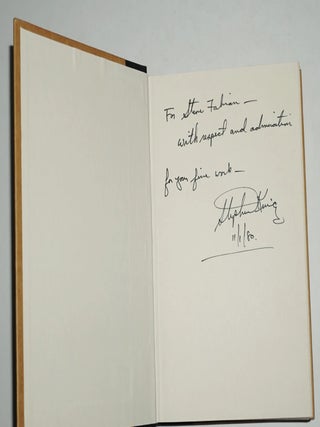 For Steve Fabian —
with respect and admiration
for your fine work —
Stephen King
11/1/80.